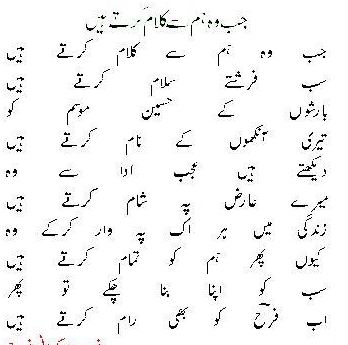 جب وہ ہم سے کلام کرتے ہیں
جب وہ ہم سے کلام کرتے ہیں
سب فرشتے سلام کرتے ہیں
بارشوں کے حسین موسم کو
تیری آنکھوں کے نام کرتے ہیں
دیکھتے ہیں عجب ادا سے وہ
میرے عارض پہ شام کرتے ہیں
زندگی میں ہر اک پہ وار کرکے وہ
کیوں پھر ہم کو تمام کرتے ہیں
سب کو اپنا بنا چکے تو پھر
اب فرح کو بھی رام کرتے ہیں